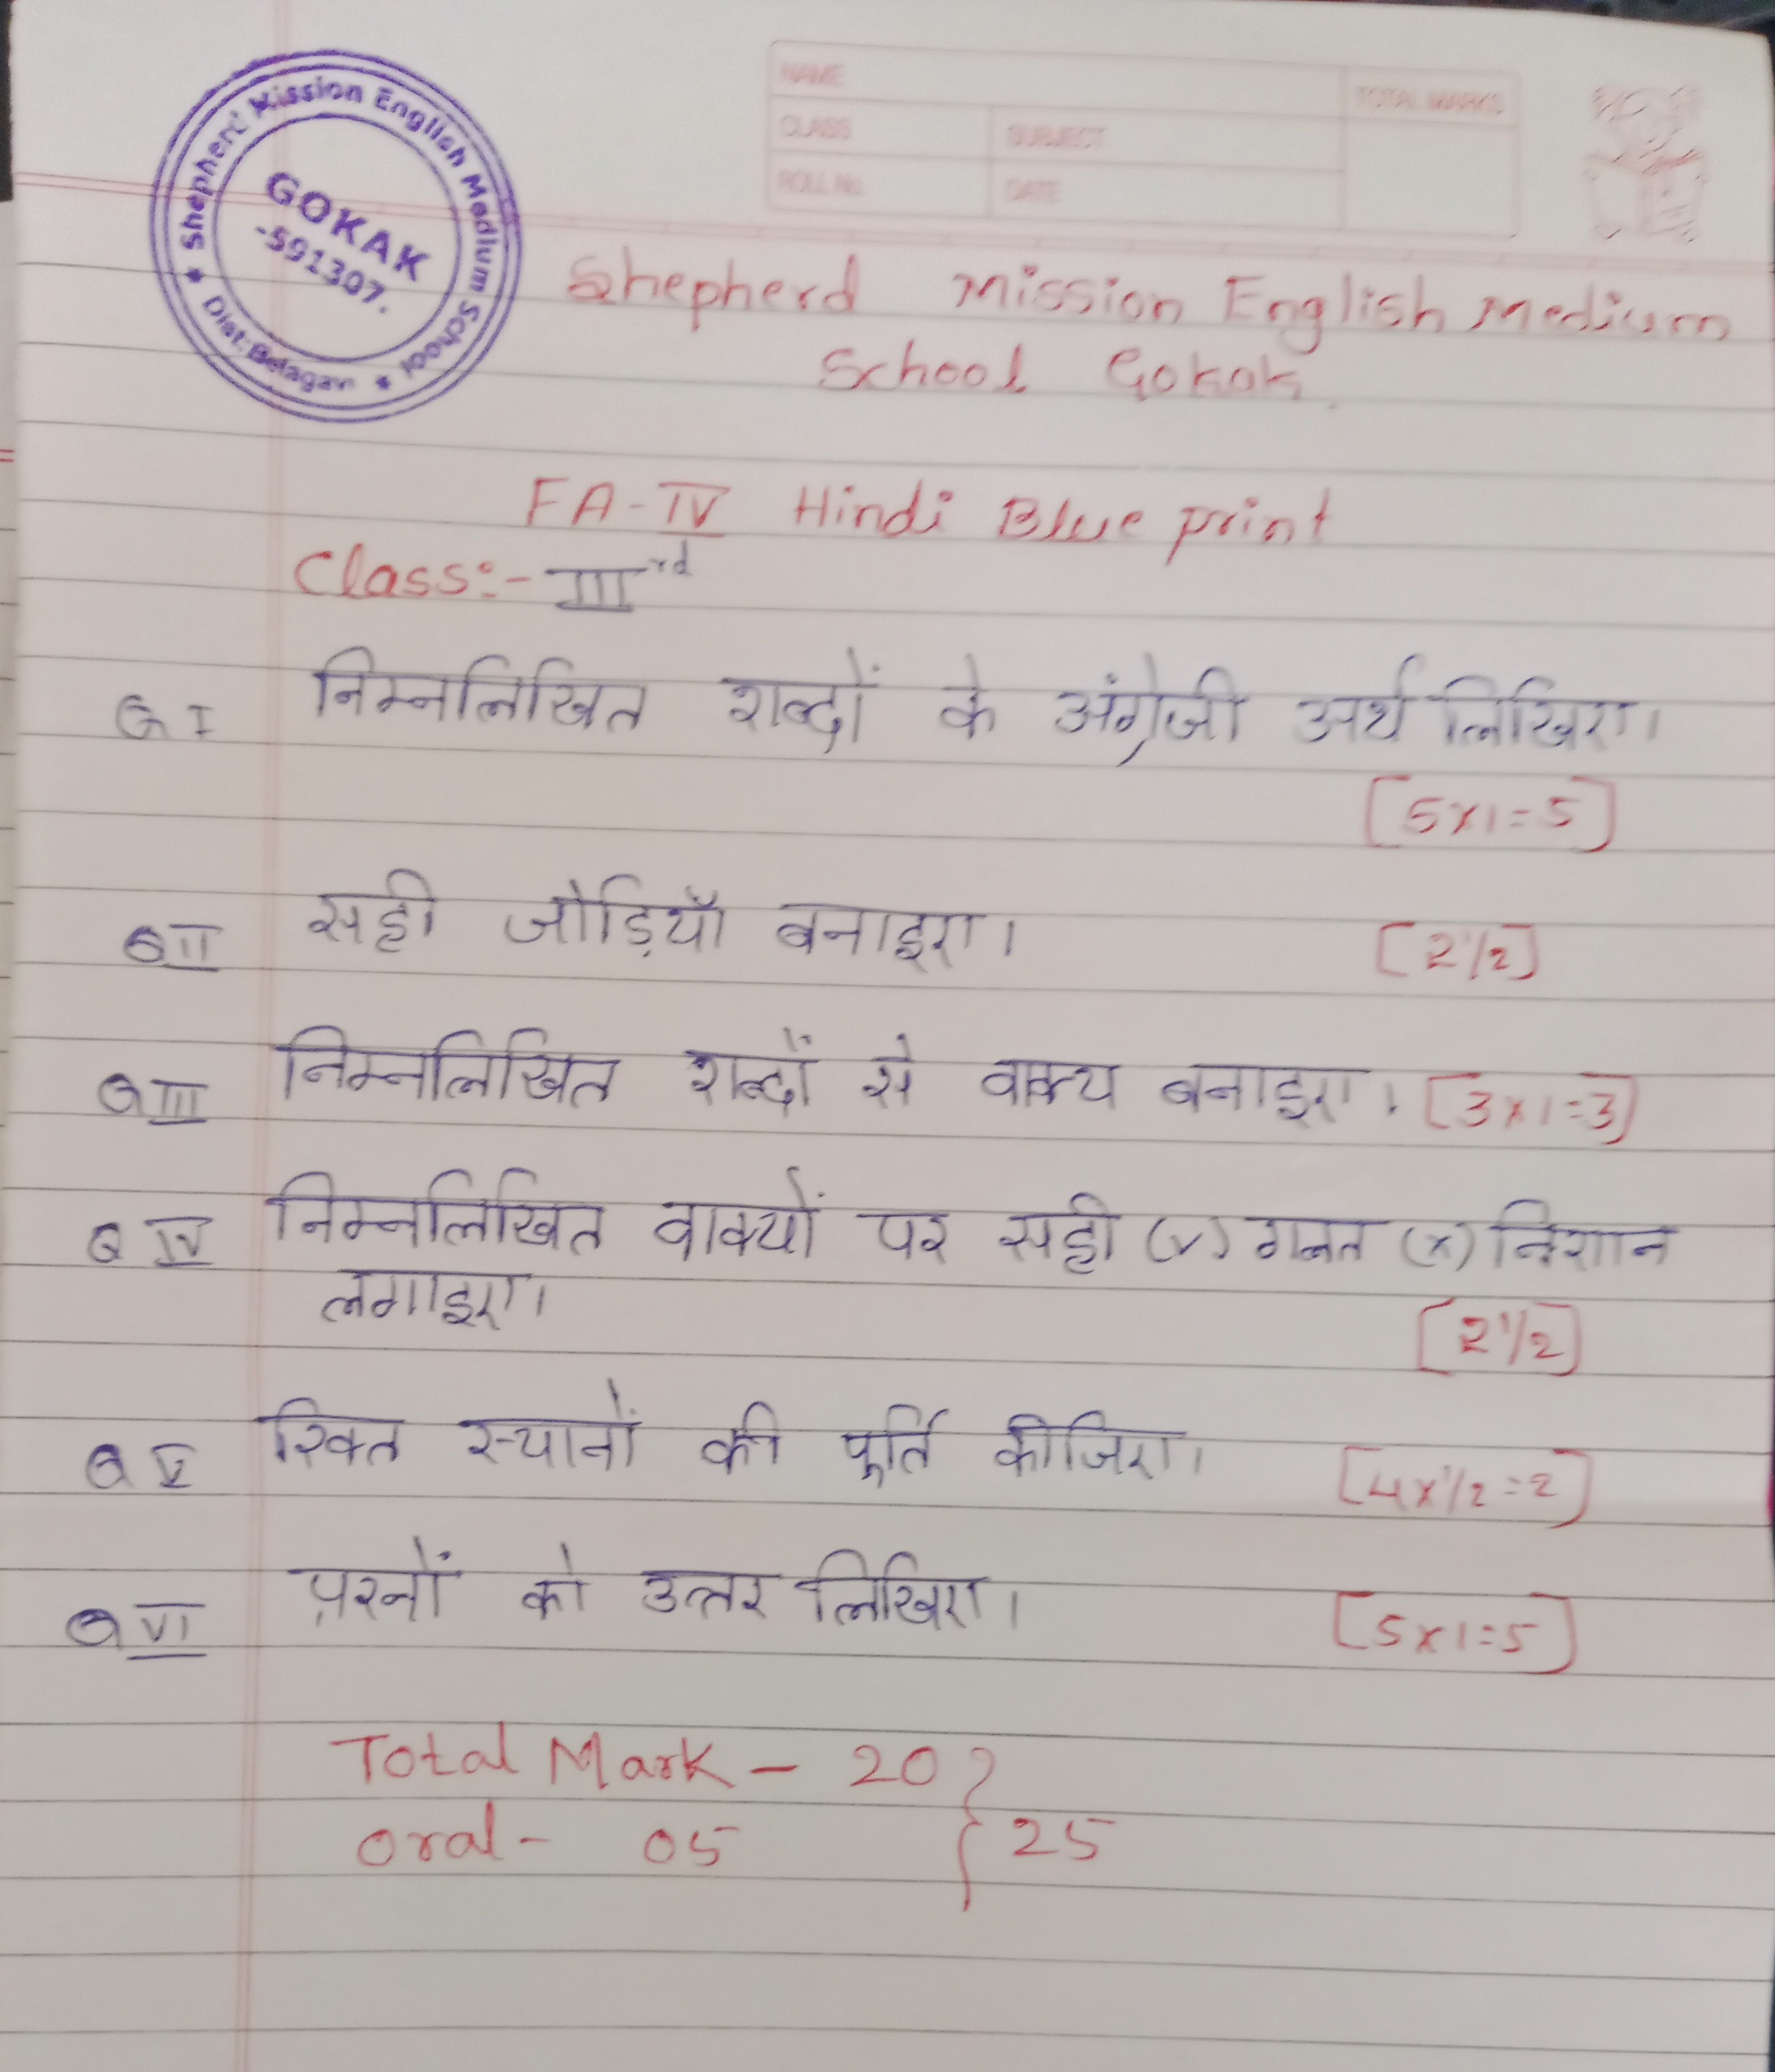 Shepherd Mission English Medium School
★ Dist. Belagavi ★
GOKAK
-591307.
NAME
TOTAL MARKS
CLASS
SUBJECT
ROLL No.
DATE
Shepherd Mission English Medium
School Gokak.
FA-IV Hindi Blue print
Class:- IIIrd
Q I निम्नलिखित शब्दों के अंग्रेजी अर्थ लिखिए।
[5x1=5]
Q II सही जोड़ियाँ बनाइए। [2 1/2]
Q III निम्नलिखित शब्दों से वाक्य बनाइए। [3x1=3]
Q IV निम्नलिखित वाक्यों पर सही (✓) गलत (x) निशान
लगाइए।
[2 1/2]
Q V रिक्त स्थानों की पूर्ति कीजिए। [4x1/2=2]
Q VI प्रश्नों को उत्तर लिखिए। [5x1=5]
Total Mark - 20 }
Oral - 05 } 25